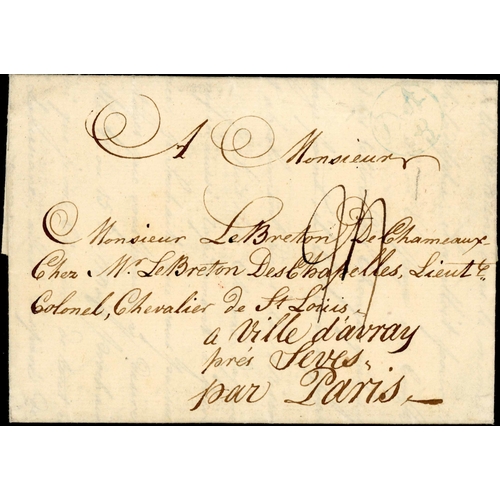 A Monsieur
Monsieur LeBreton De Chameaux
Chez Mr. LeBreton Des Chapelles, Lieut.
Colonel, Chevalier de St Louis
a Ville d'avray
prés Seves
par Paris